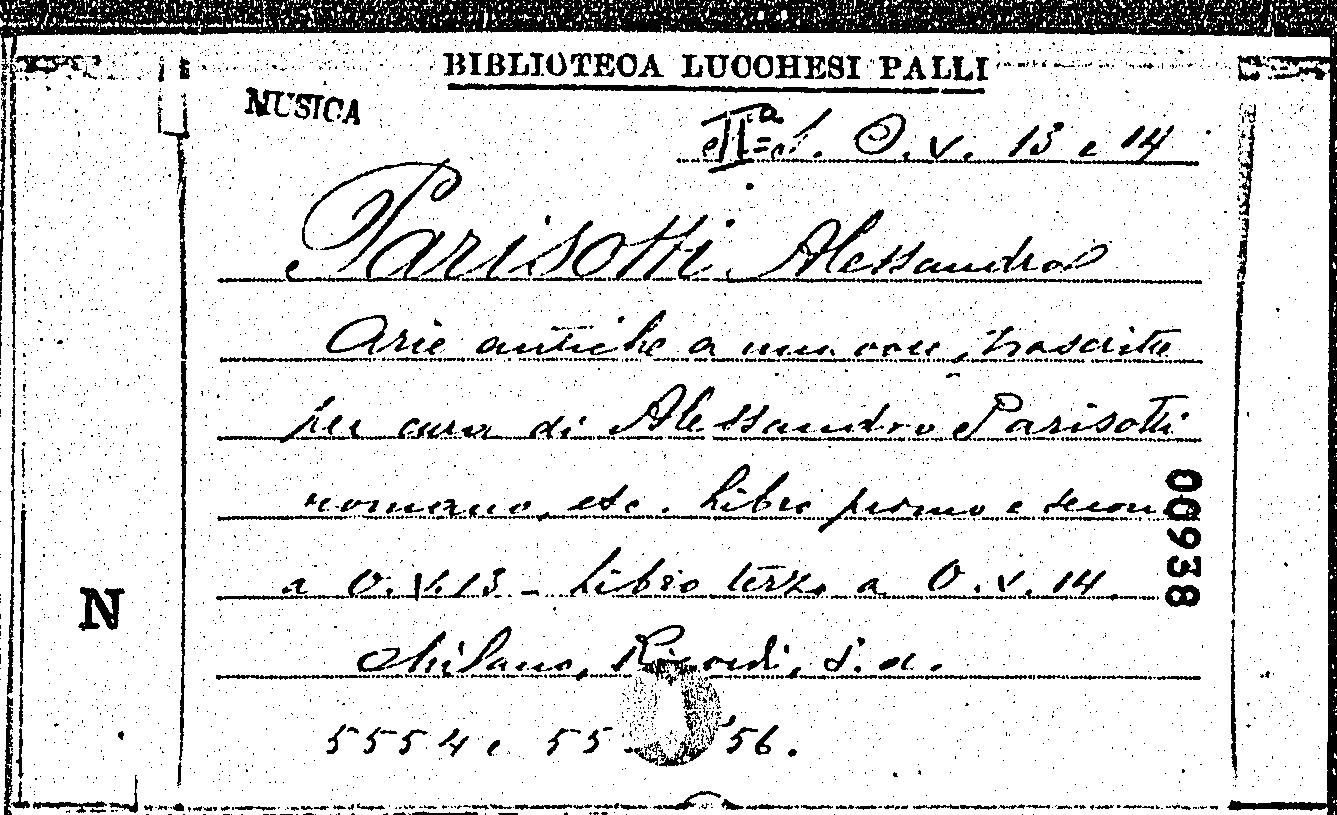 BIBLIOTECA LUCCHESI PALLI
MUSICA
IIª S. O. V. 13 e 14
Parisotti Alessandro
Arie antiche a una voce, trascritte
per cura di Alessandro Parisotti
romano, etc. Libro primo e secon
a O. V. 13 - Libro terzo a O. V. 14.
Milano, Ricordi, s. a.
5554 e 55 56.
00938
N